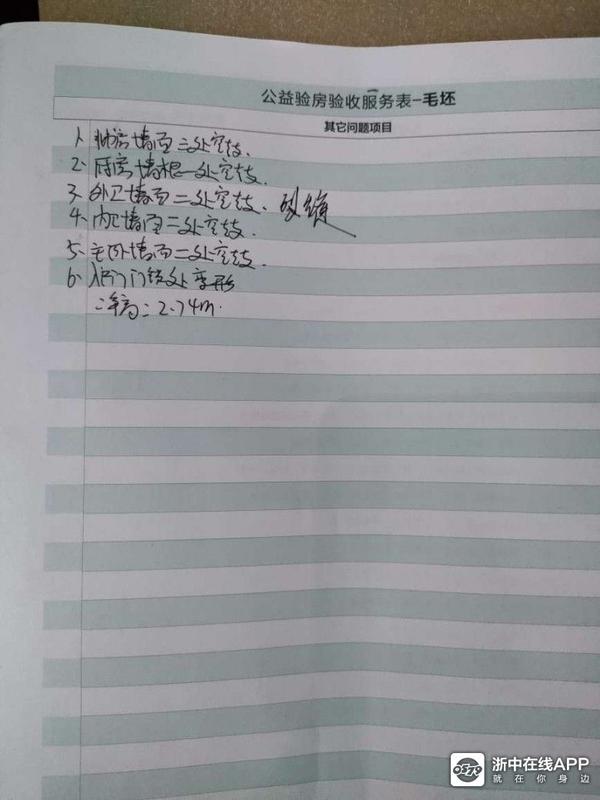 公益验房验收服务表-毛坯
其它问题项目
1、厨房墙面二处空鼓.
2、厨房墙根一处空鼓.
3、外卫墙面二处空鼓. 裂缝
4、内卫墙面二处空鼓.
5、主卧墙面二处空鼓.
6、入户门门锁处变形
净高：2.74m.
浙中在线APP
就在你身边